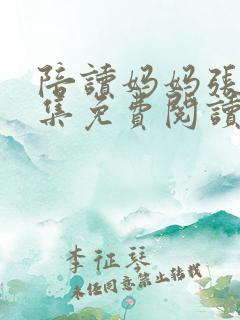 陪讀妈妈張
集免費閱讀
李征琴
未经同意禁止转载